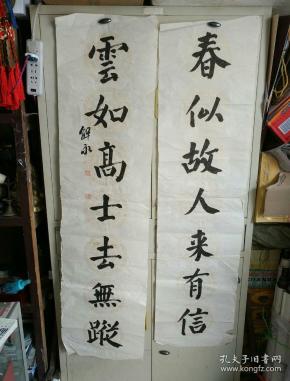 春似故人来有信
雲如高士去無蹤
解永
孔夫子旧书网